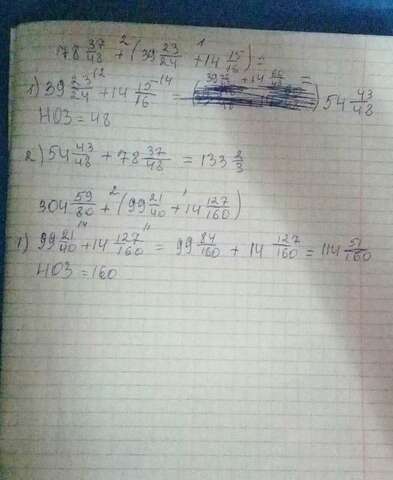 78 37/48 + (39 23/24 + 14 15/16) =
1) 39 23/24 + 14 15/16 = 54 43/48
НОЗ = 48
2) 54 43/48 + 78 37/48 = 133 2/3
304 59/80 + (99 21/40 + 14 127/160)
1) 99 21/40 + 14 127/160 = 99 84/160 + 14 127/160 = 114 51/160
НОЗ = 160